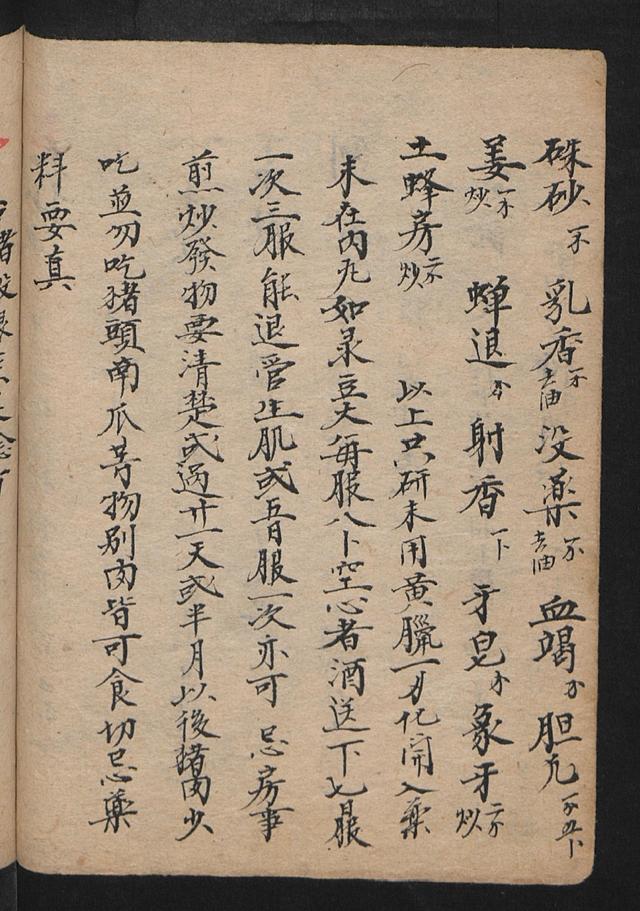 硃砂 乳香 去油 没藥 去油 血竭 胆凡
姜 炒 蟬退 射香 牙皂 象牙 炒
土蜂房 炒 以上共研末用黄臘一 化開入藥
末在内丸如录豆大每服八卜空心者酒送下七日服
一次三服能退管生肌或五日服一次亦可 忌房事
煎炒發物要清楚或過廿一天或半月以後猪肉少
吃並勿吃猪頭南瓜等物别肉皆可食切忌藥
料要真